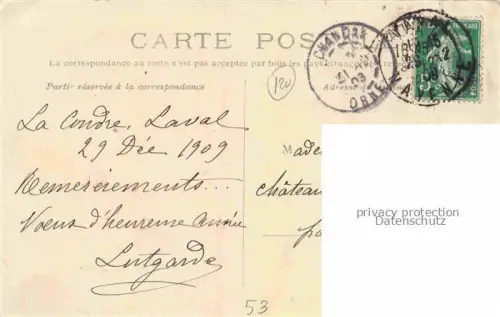 CARTE POS
La correspondance au recto n'est pas acceptée par tous les pays étrangers
Partie réservée à la correspondance
Adresse
120
CHANDAI
31
09
ORNE
LAVAL
MAYENNE
La Coudre, Laval
29 Déc 1909
Remerciements...
Voeux d'heureuse année
Lutgarde
M
Made
château
pa
privacy protection
Datenschutz
53